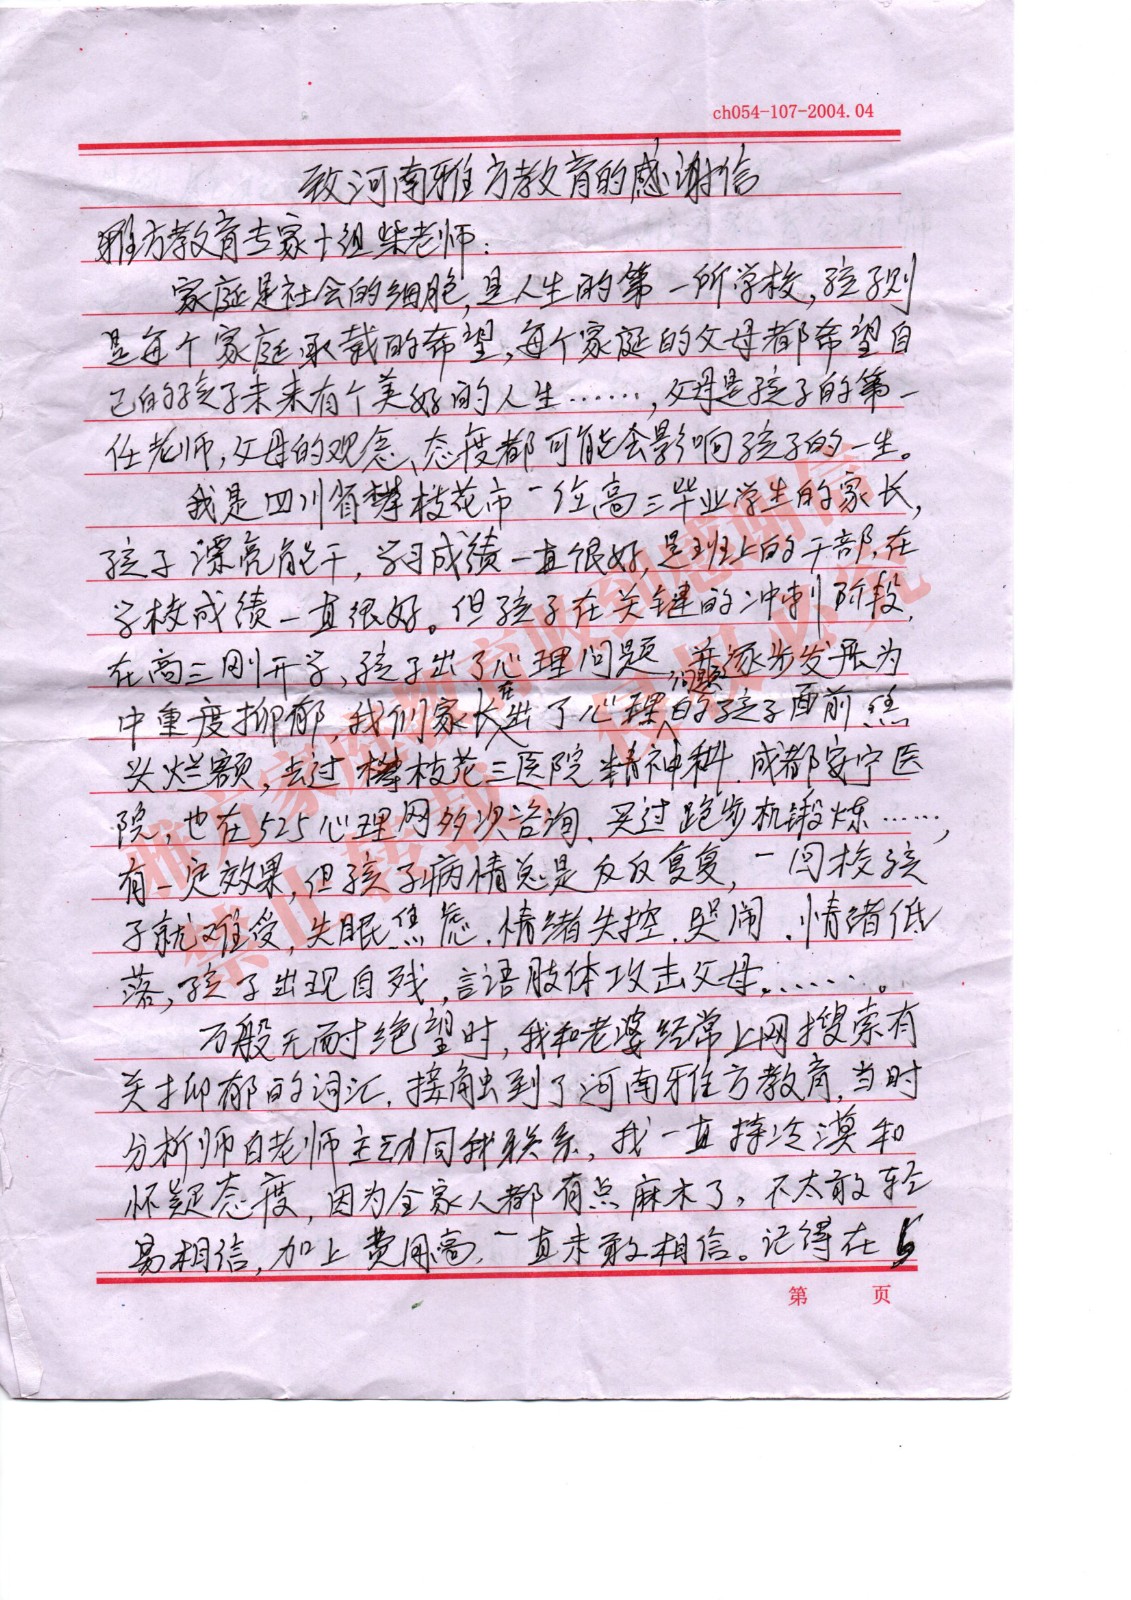 ch054-107-2004.04
致河南雅方教育的感谢信
雅方教育专家十组柴老师：
家庭是社会的细胞，是人生的第一所学校，孩子则
是每个家庭承载的希望，每个家庭的父母都希望自
己的孩子未来有个美好的人生……，父母是孩子的第一
任老师，父母的观念、态度都可能会影响孩子的一生。
我是四川省攀枝花市一位高三毕业学生的家长，
孩子漂亮能干，学习成绩一直很好，是班上的干部，在
学校成绩一直很好。但孩子在关键的冲刺阶段，
在高三刚开学，孩子出了心理问题，并逐步发展为
中重度抑郁，我们家长在出了心理问题的孩子面前焦
头烂额，去过攀枝花三医院精神科、成都安宁医
院，也在525心理网多次咨询、买过跑步机锻炼……，
有一定效果，但孩子病情总是反反复复，一回校孩
子就难受，失眠焦虑、情绪失控、哭闹、情绪低
落，孩子出现自残，言语肢体攻击父母……。
万般无耐绝望时，我和老婆经常上网搜索有
关抑郁的词汇，接触到了河南雅方教育，当时
分析师白老师主动同我联系，我一直持冷漠和
怀疑态度，因为全家人都有点麻木了，不太敢轻
易相信，加上费用高，一直未敢相信。记得在5
第 页
雅方家庭教育收到感谢信
禁止转载，侵权必究